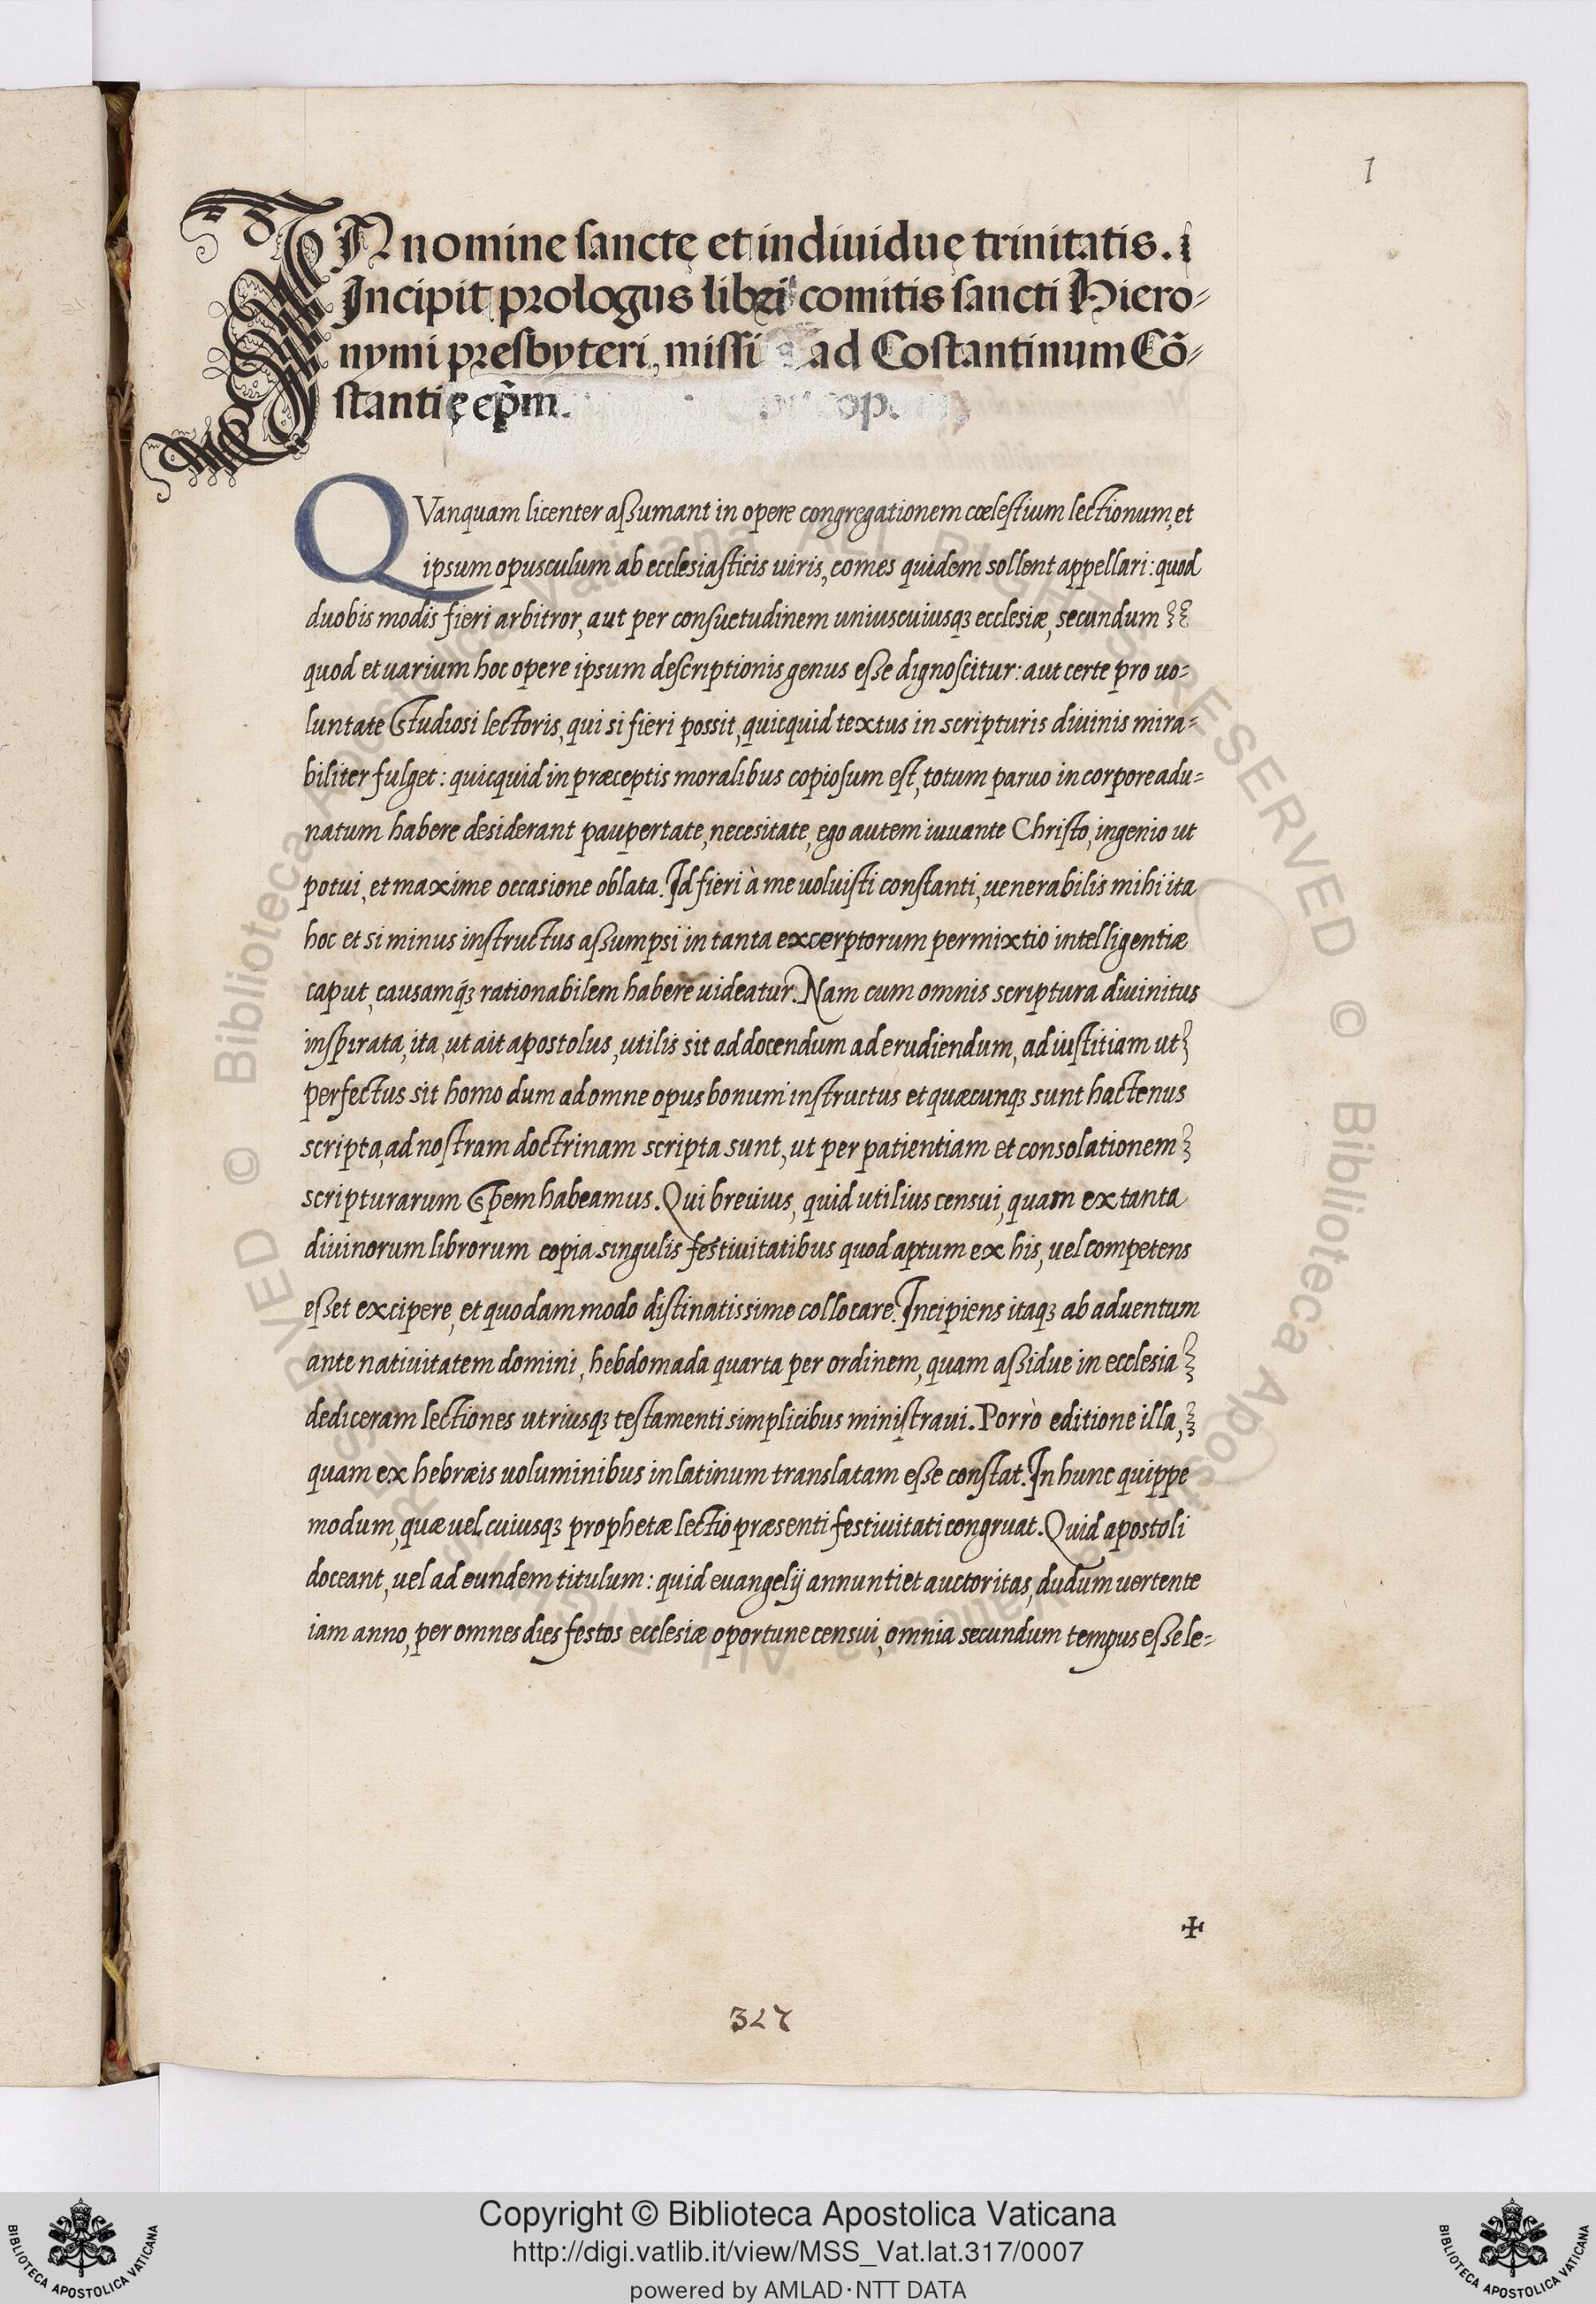 1
IN nomine sanctę et indiuiduę trinitatis.
Incipit prologus libri comitis sancti Hiero-
nymi presbyteri, missi ad Costantinum Cõ-
stantię ep̃m.
QVanquam licenter aßumant in opere congregationem cœlestium lectionum, et
ipsum opusculum ab ecclesiasticis uiris, comes quidem sollent appellari: quod
duobis modis fieri arbitror, aut per consuetudinem uniuscuiusqꝫ ecclesiæ, secundum
quod et uarium hoc opere ipsum descriptionis genus eße dignoscitur: aut certe pro uo-
luntate studiosi lectoris, qui si fieri possit, quicquid textus in scripturis diuinis mira-
biliter fulget: quicquid in præceptis moralibus copiosum est, totum paruo in corpore adu-
natum habere desiderant paupertate, necesitate, ego autem iuuante Christo, ingenio ut
potui, et maxime occasione oblata. Id fieri à me uoluisti constanti, uenerabilis mihi ita
hoc et si minus instructus aßumpsi in tanta excerptorum permixtio intelligentiæ
caput, causamq́ꝫ rationabilem habere uideatur. Nam cum omnis scriptura diuinitus
inspirata, ita, ut ait apostolus, utilis sit ad docendum ad erudiendum, ad iustitiam ut
perfectus sit homo dum ad omne opus bonum instructus et quæcunqꝫ sunt hactenus
scripta, ad nostram doctrinam scripta sunt, ut per patientiam et consolationem
scripturarum spem habeamus. Qui breuius, quid utilius censui, quam ex tanta
diuinorum librorum copia singulis festiuitatibus quod aptum ex his, uel competens
eßet excipere, et quodammodo distinatissime collocare. Incipiens itaqꝫ ab aduentum
ante natiuitatem domini, hebdomada quarta per ordinem, quam aßidue in ecclesia
dediceram lectiones utriusqꝫ testamenti simplicibus ministraui. Porrò editione illa,
quam ex hebræis uoluminibus in latinum translatam eße constat. In hunc quippe
modum, quæ uel cuiusqꝫ prophetæ lectio præsenti festiuitati congruat. Quid apostoli
doceant, uel ad eundem titulum: quid euangelij annuntiet auctoritas, dudum uertente
iam anno, per omnes dies festos ecclesiæ oportune censui, omnia secundum tempus eße le-
✠
327
Copyright © Biblioteca Apostolica Vaticana
http://digi.vatlib.it/view/MSS_Vat.lat.317/0007
powered by AMLAD·NTT DATA
BIBLIOTECA APOSTOLICA VATICANA
BIBLIOTECA APOSTOLICA VATICANA